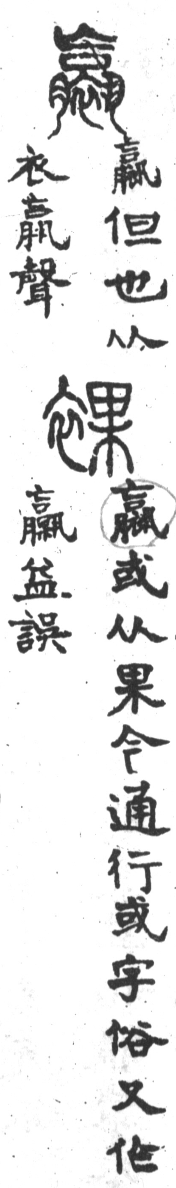 𧝹
𧝹但也从
衣𣎆聲
裸
𧝹或从果今通行或字俗又作
臝益誤